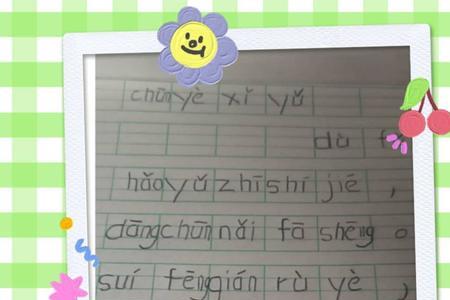 chūn yè xǐ yǔ
dù
hǎo yǔ zhī shí jié ，
dāng chūn nǎi fā shēng 。
suí fēng qián rù yè ，